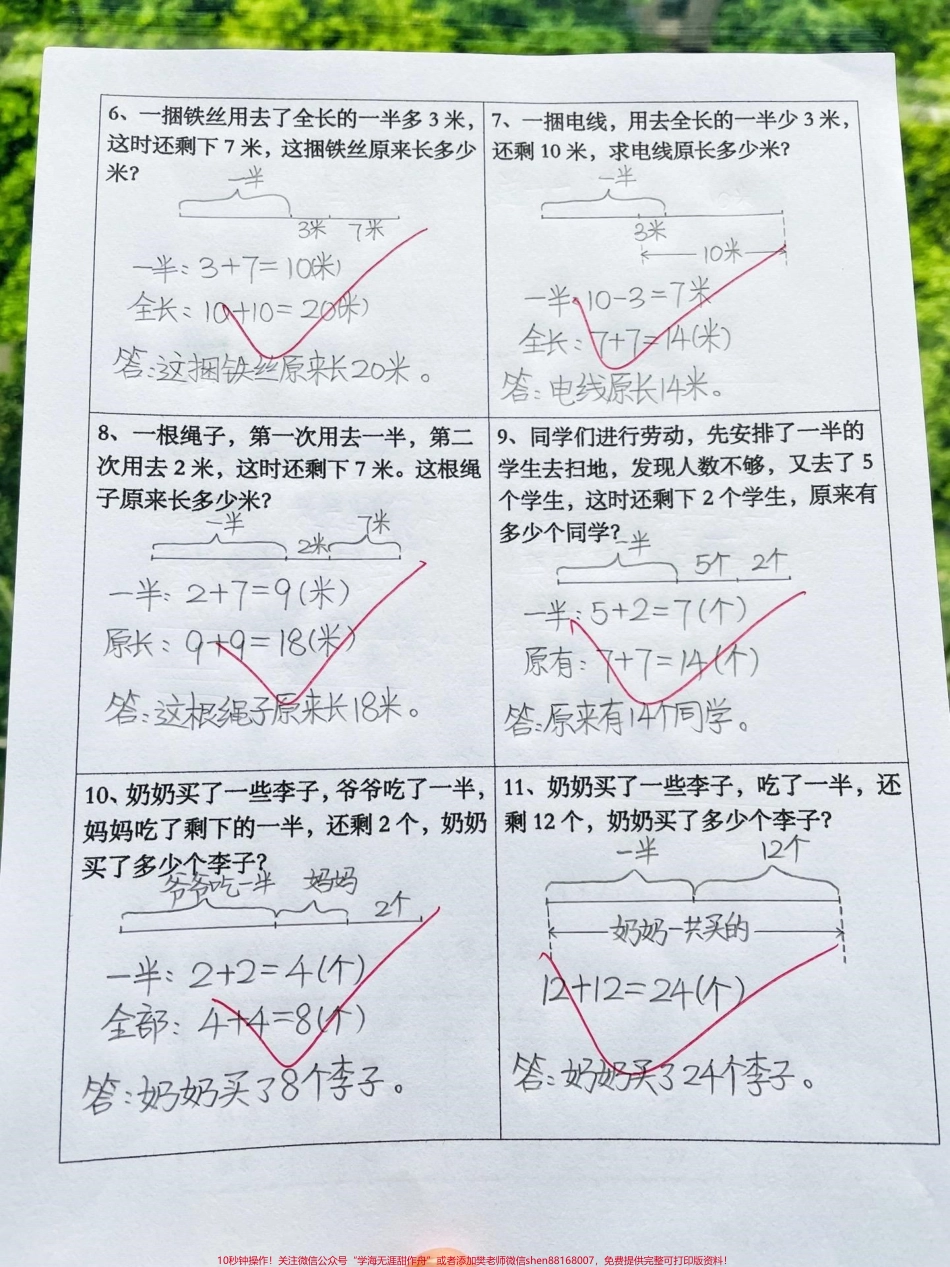 6、一捆铁丝用去了全长的一半多 3 米，
这时还剩下 7 米，这捆铁丝原来长多少
米？
一半
3米 7米
一半：3+7=10(米)
全长：10+10=20(米)
答：这捆铁丝原来长20米。
7、一捆电线，用去全长的一半少 3 米，
还剩 10 米，求电线原长多少米？
一半
3米
10米
一半：10-3=7米
全长：7+7=14(米)
答：电线原长14米。
8、一根绳子，第一次用去一半，第二
次用去 2 米，这时还剩下 7 米。这根绳
子原来长多少米？
一半 2米 7米
一半：2+7=9(米)
原长：9+9=18(米)
答：这根绳子原来长18米。
9、同学们进行劳动，先安排了一半的
学生去扫地，发现人数不够，又去了 5
个学生，这时还剩下 2 个学生，原来有
多少个同学？
一半 5个 2个
一半：5+2=7(个)
原有：7+7=14(个)
答：原来有14个同学。
10、奶奶买了一些李子，爷爷吃了一半，
妈妈吃了剩下的一半，还剩 2 个，奶奶
买了多少个李子？
爷爷吃一半 妈妈 2个
一半：2+2=4(个)
全部：4+4=8(个)
答：奶奶买了8个李子。
11、奶奶买了一些李子，吃了一半，还
剩 12 个，奶奶买了多少个李子？
一半 12个
奶奶一共买的
12+12=24(个)
答：奶奶买了24个李子。
10秒钟操作！关注微信公众号“学海无涯甜作舟”或者添加樊老师微信shen88168007，免费提供完整可打印版资料！